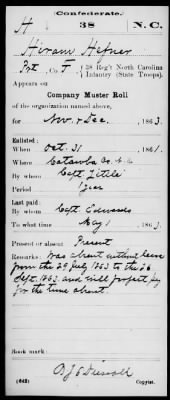 Confederate.
H 38 N.C.
Hiram Hefner
Pvt, Co. F, 38 Reg't North Carolina
Infantry (State Troops).
Appears on
Company Muster Roll
of the organization named above,
for Nov & Dec, 1863.
Enlisted:
When Oct. 31, 1861.
Where Catawba Co. N.C.
By whom Capt. Little
Period 1 year
Last paid:
By whom Capt. Edwards
To what time Aug 1, 1863.
Present or absent Present
Remarks: Was absent without leave
from the 29 July 1863 to the 26
Sept. 1863 and will forfeit pay
for the time absent.
Book mark:
(642) Copyist.